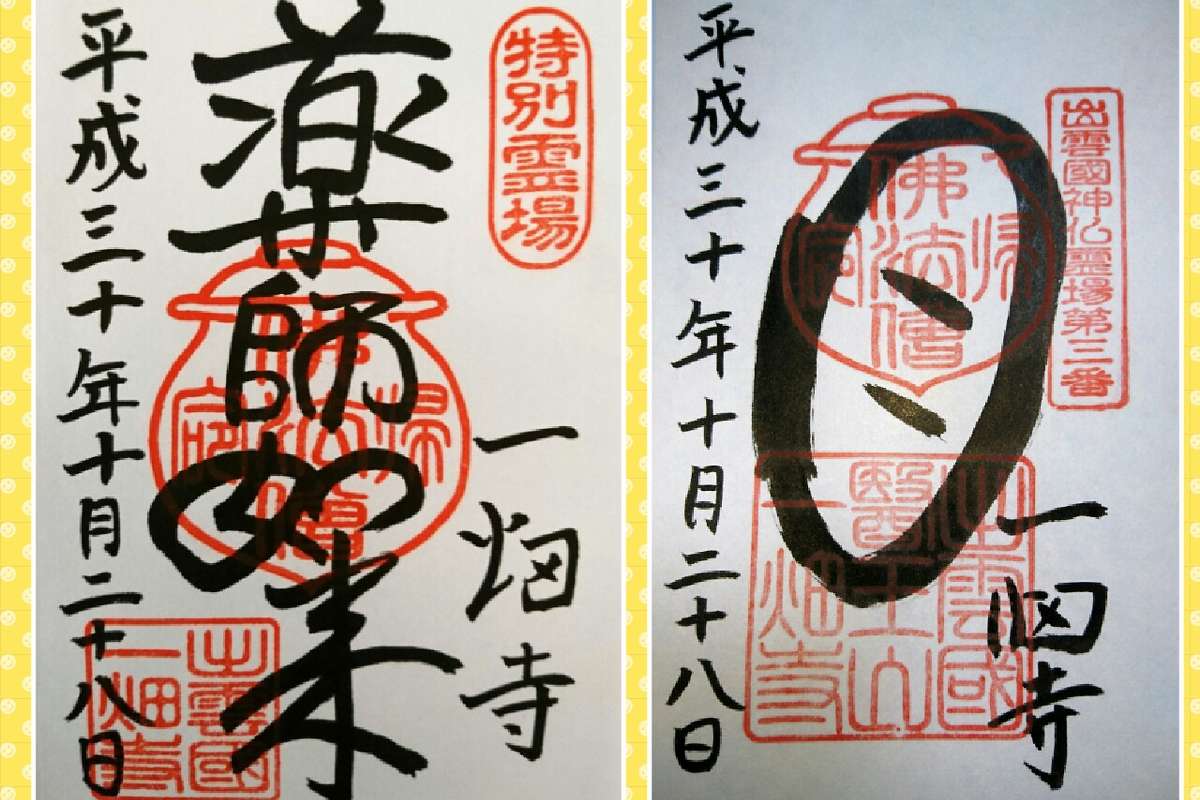 特別霊場
薬師如来
佛法僧
帰
一畑寺
平成三十年十月二十八日
出雲國
一畑寺
出雲國神仏霊場第三番
佛法僧
帰
一畑寺
平成三十年十月二十八日
出雲國
醫王山
一畑寺